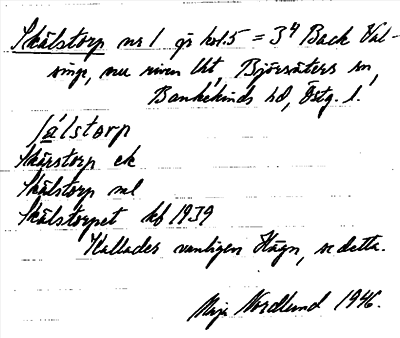 Skålstorp nr 1 på kol.5 = 3/4 Back Val-
inge, nu riven lht, Björsäters sn,
Bankekinds hd, Östg. l.
sålstorp
Skårstorp ek
Skålstorp ml
Skålstorpet kb 1939
Kallades vanligen Hagn, se detta.
Maja Nordlund 1946.